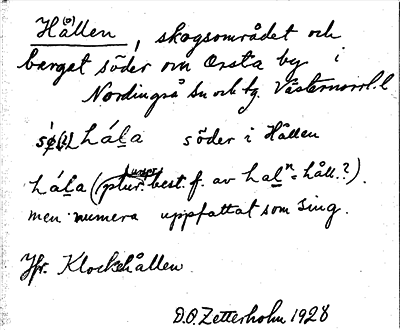 Hållen, skogsområdet och
berget söder om Orsta by i
Nordingrå sn och tg. Västernorrl. l
hála söder i Hållen
hála (plur. best. f. av = håll.?).
men numera uppfattat som sing.
Jfr. Klockehållen.
D.O. Zetterholm 1928